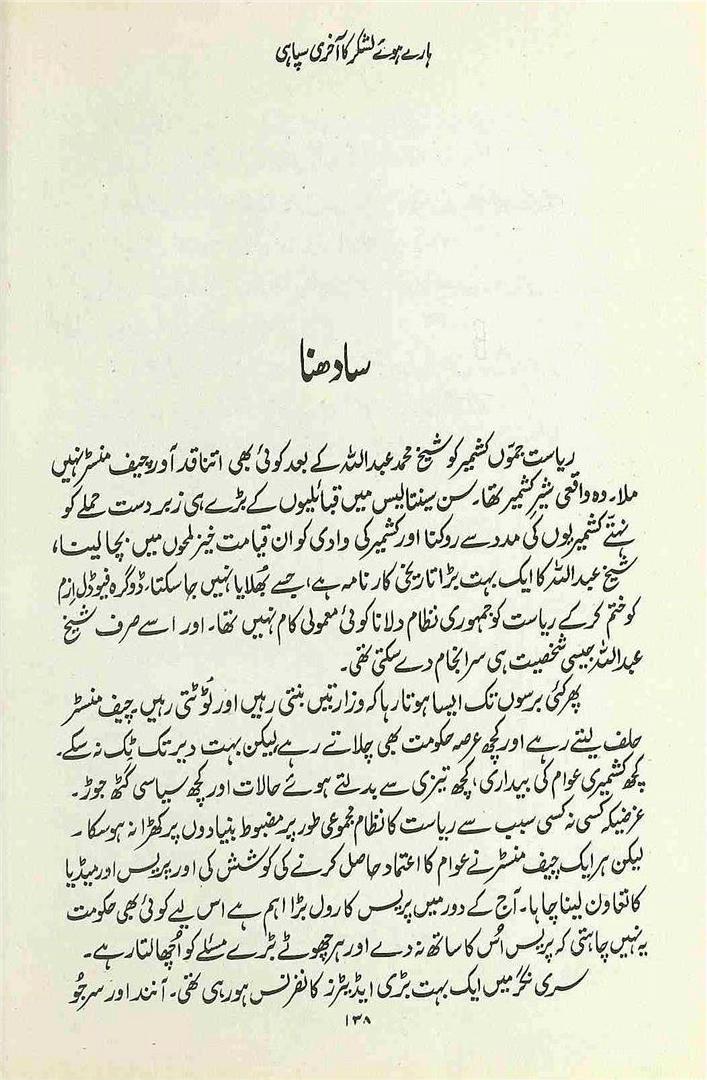 ہارے ہوئے لشکر کا آخری سپاہی
سادھنا
ریاست جموّں کشمیر کو شیخ محمد عبداللہ کے بعد کوئی بھی اتنا قد آور چیف منسٹر نہیں
ملا۔ وہ واقعی شیرِ کشمیر تھا۔ سن سینتالیس میں قبائلیوں کے بڑے ہی زبردست حملے کو
نہتے کشمیریوں کی مدد سے روکنا اور کشمیر کی وادی کو ان قیامت خیز لمحوں میں بچا لینا،
شیخ عبداللہ کا ایک بہت بڑا تاریخی کارنامہ ہے، جسے بُھلایا نہیں جا سکتا۔ ڈوگرہ فیوڈل ازم
کو ختم کر کے ریاست کو جمہوری نظام دلانا کوئی معمولی کام نہیں تھا۔ اور اسے صرف شیخ
عبداللہ جیسی شخصیت ہی سرانجام دے سکتی تھی۔
پھر کئی برسوں تک ایسا ہوتا رہا کہ وزارتیں بنتی رہیں اور ٹوٹتی رہیں۔ چیف منسٹر
حلف لیتے رہے اور کچھ عرصہ حکومت بھی چلاتے رہے لیکن بہت دیر تک ٹِک نہ سکے۔
کچھ کشمیری عوام کی بیداری، کچھ تیزی سے بدلتے ہوئے حالات اور کچھ سیاسی گٹھ جوڑ۔
غرضیکہ کسی نہ کسی سبب سے ریاست کا نظام مجموعی طور پر مضبوط بنیادوں پر کھڑا نہ ہو سکا۔
لیکن ہر ایک چیف منسٹر نے عوام کا اعتماد حاصل کرنے کی کوشش کی اور پریس اور میڈیا
کا تعاون لینا چاہا۔ آج کے دور میں پریس کا رول بڑا اہم ہے اس لیے کوئی بھی حکومت
یہ نہیں چاہتی کہ پریس اُس کا ساتھ نہ دے اور ہر چھوٹے بڑے مسئلے کو اُچھالتا رہے۔
سری نگر میں ایک بہت بڑی ایڈیٹرز کانفرنس ہو رہی تھی۔ آنند اور سرجُو
۱۳۸